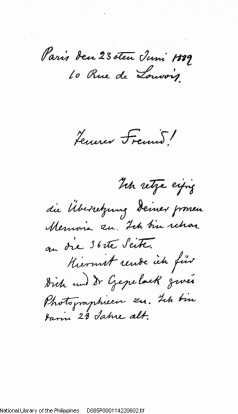 Paris den 23sten Juni 1889
10 Rue de Louvois.
Teurer Freund!
Ich setze eifrig
die Übersetzung Deiner grossen
Memoria zu. Ich bin schon
an die 36ste Seite.
Hiermit sende ich für
Dich und Dr Czepelack zwei
Photographieen zu. Ich bin
darin 28 Jahre alt.
National Library of the Philippines D00SP000114220602.tif